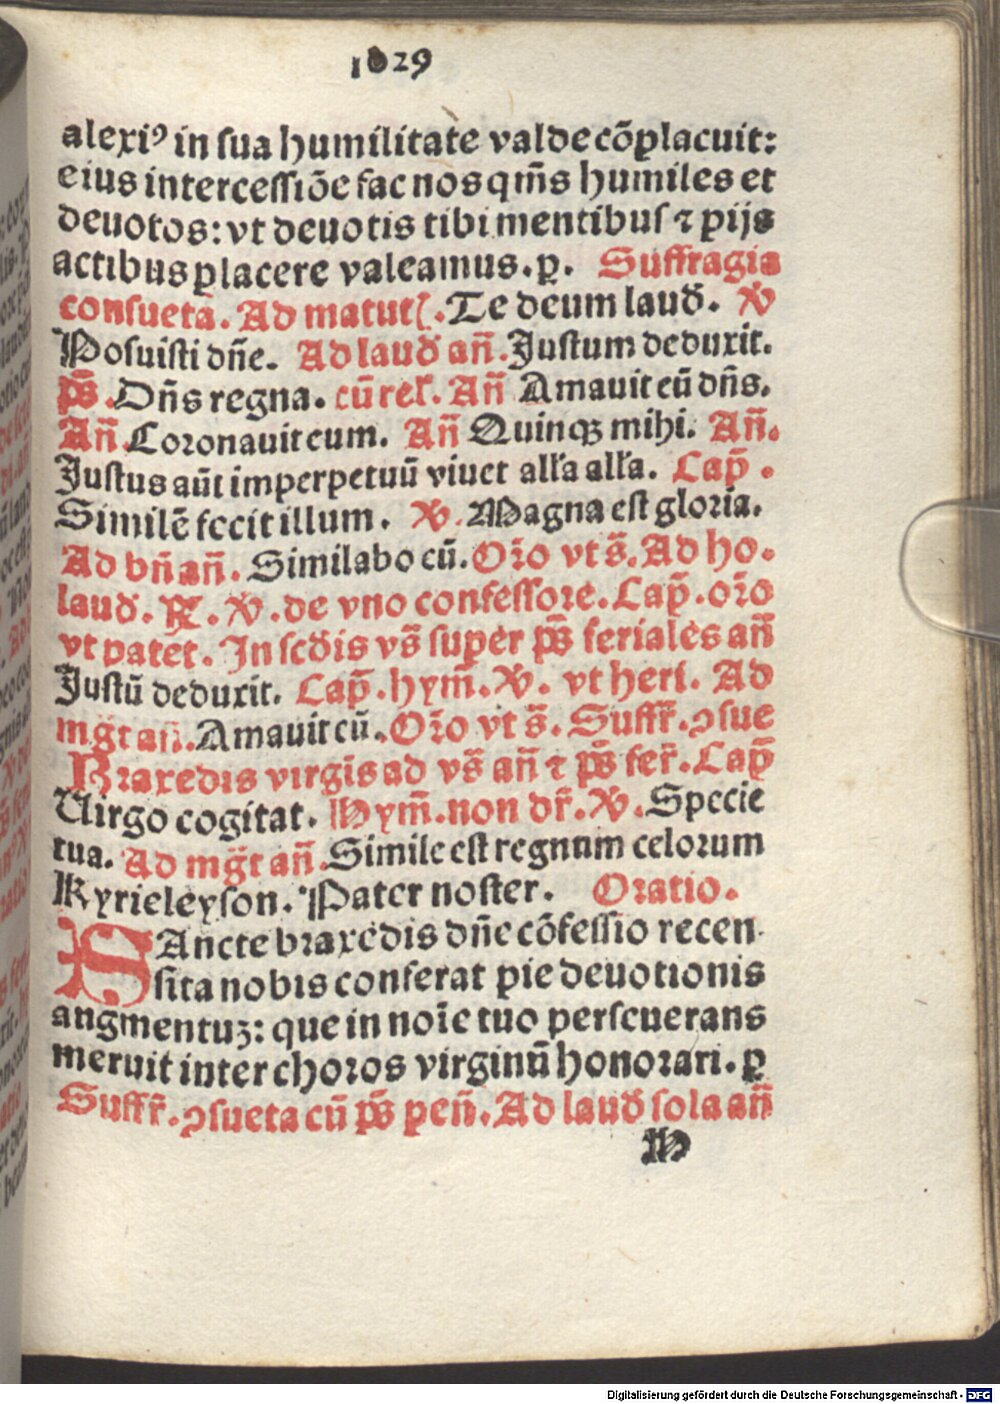 1029
alexiꝰ in ſua humilitate valde cōplacuit:
eius interceſſiōe fac nos qm̄s humiles et
deuotos: vt deuotis tibi mentibuſ ⁊ pijs
actibus placere valeamus. ꝑ. Suffragia
conſueta. Ad matutꝭ. Te deum laud̄. ℣
Poſuiſti dn̄e. Ad laud̄ an̄. Juſtum deduxit.
p̄s. Dn̄s regna. cū reł. An̄ Amauit eū dn̄s.
An̄. Coronauit eum. An̄ Quinqꝫ mihi. An̄.
Juſtus aūt imperpetuū viuet alła alła. Cap̄.
Similē fecit illum. ℣. Magna eſt gloꝛia.
Ad bn̄ an̄. Similabo eū. Oꝛ̄o vt s̄. Ad ho-
laud̄. ℟. ℣. de vno confeſſoꝛe. Cap̄. oꝛ̄o
vt patet. In ſcd̄is vs̄ ſuper p̄s feriales an̄
Juſtū deduxit. Cap̄. hym̄. ℣. vt heri. Ad
mḡt an̄. Amauit eū. Oꝛ̄o vt s̄. Suffr̄. ꝯſue
Braxedis virgīs ad vs̄ an̄ ⁊ p̄s fer̄. Cap̄
Uirgo cogitat. Hym̄. non dr̄. ℣. Specie
tua. Ad mḡt an̄. Simile eſt regnum celoꝛum
Kyrieleyſon. Pater noſter. Oratio.
SAncte bꝛaxedis dn̄e cōfeſſio recen-
ſita nobis conferat pie deuotionis
angmentuꝫ: que in noīe tuo perſeuerans
meruit inter choꝛos virginū honoꝛari. ꝑ
Suffr̄. ꝯſueta cū p̄s pen̄. Ad laud̄ ſola an̄
H
Digitalisierung gefördert durch die Deutsche Forschungsgemeinschaft - DFG